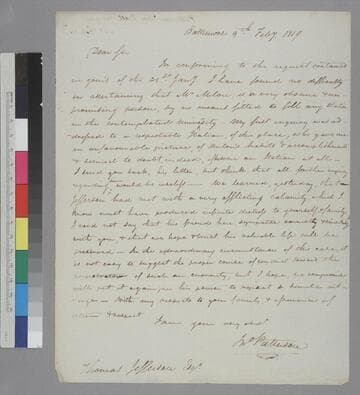 Baltimore 9th Feby. 1819.
Dear Sir
In conforming to the request contained
in yours of the 28th Jany. I have found no difficulty
in ascertaining that Mr. Meloni, is a very obscure & un-
promising person, by no means fitted to fill any station
in the contemplated University. My first enquiry was ad-
dressed to a respectable Italian of this place, who gave me
an unfavourable picture of Melonis habits & accomplishments
& seemed to doubt indeed, his being an Italian at all.
I send you back, his letter, but think that all further enquiry
regarding would be useless. We learned, yesterday, that
Jefferson had met with a very afflicting calamity which I
know must have produced infinite distress to yourself & family.
I need not say that his friends here sympathise sincerely
with you & that we hope & trust his valuable life will be
preserved — In the extraordinary circumstances of the case, it
is not easy to suggest the proper course of conduct toward the
of such an enormity but I hope, no compromise
will put it again in his power to repeat a similar out-
rage — With my respects to your family, & assurances of
esteem & respect
I am yours very
Jno. Patterson
Thomas Jefferson Esqr.